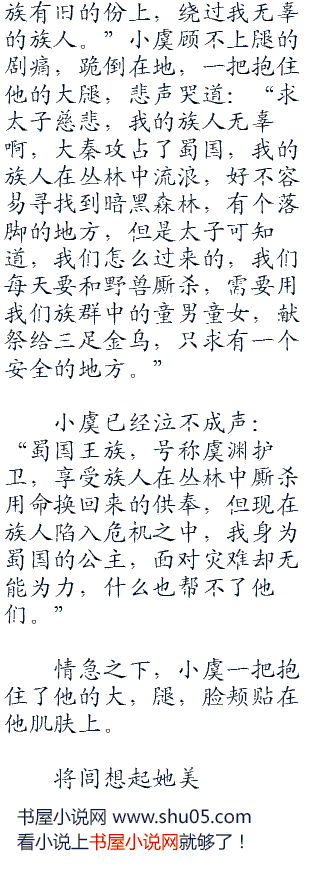 族有旧的份上，绕过我无辜
的族人。”小虞顾不上腿的
剧痛，跪倒在地，一把抱住
他的大腿，悲声哭道：“求
太子慈悲，我的族人无辜
啊，大秦攻占了蜀国，我的
族人在丛林中流浪，好不容
易寻找到暗黑森林，有个落
脚的地方，但是太子可知
道，我们怎么过来的，我们
每天要和野兽厮杀，需要用
我们族群中的童男童女，献
祭给三足金乌，只求有一个
安全的地方。”
小虞已经泣不成声：
“蜀国王族，号称虞渊护
卫，享受族人在丛林中厮杀
用命换回来的供奉，但现在
族人陷入危机之中，我身为
蜀国的公主，面对灾难却无
能为力，什么也帮不了他
们。”
情急之下，小虞一把抱
住了他的大，腿，脸颊贴在
他肌肤上。
将闾想起她美
书屋小说网 www.shu05.com
看小说上书屋小说网就够了！